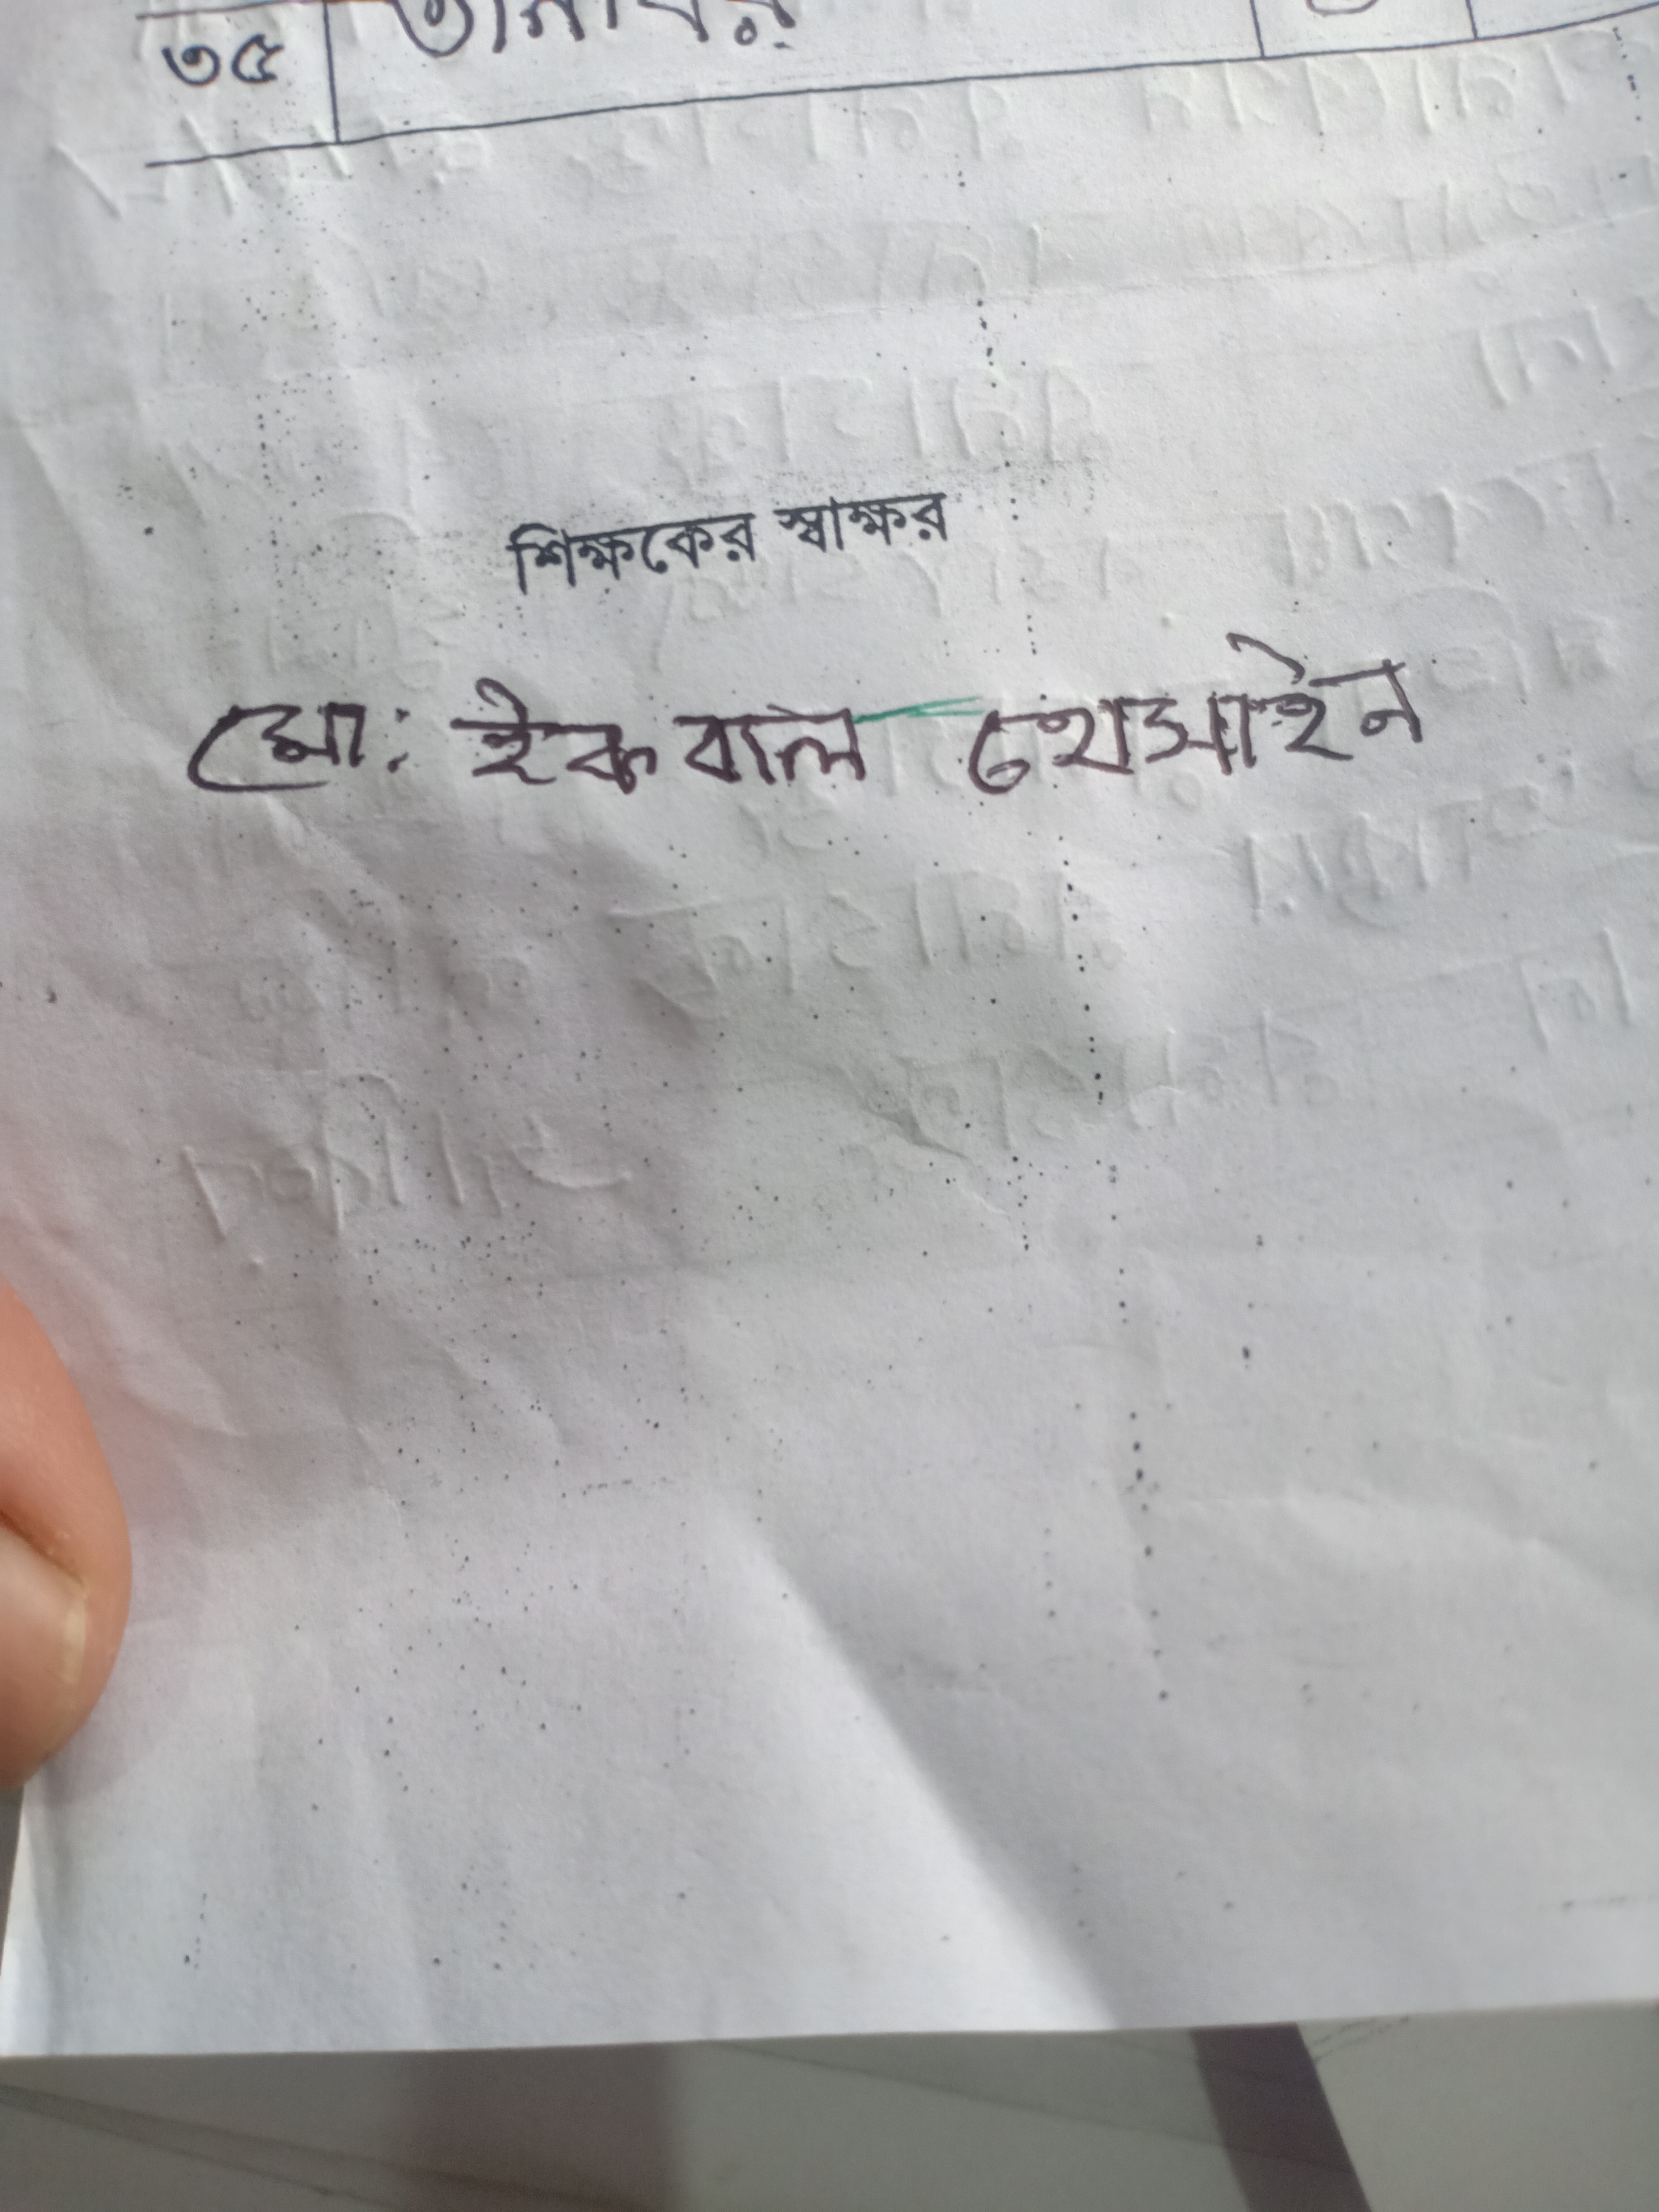 ৩৫
শিক্ষকের স্বাক্ষর
মো: ইকবাল হোসাইন